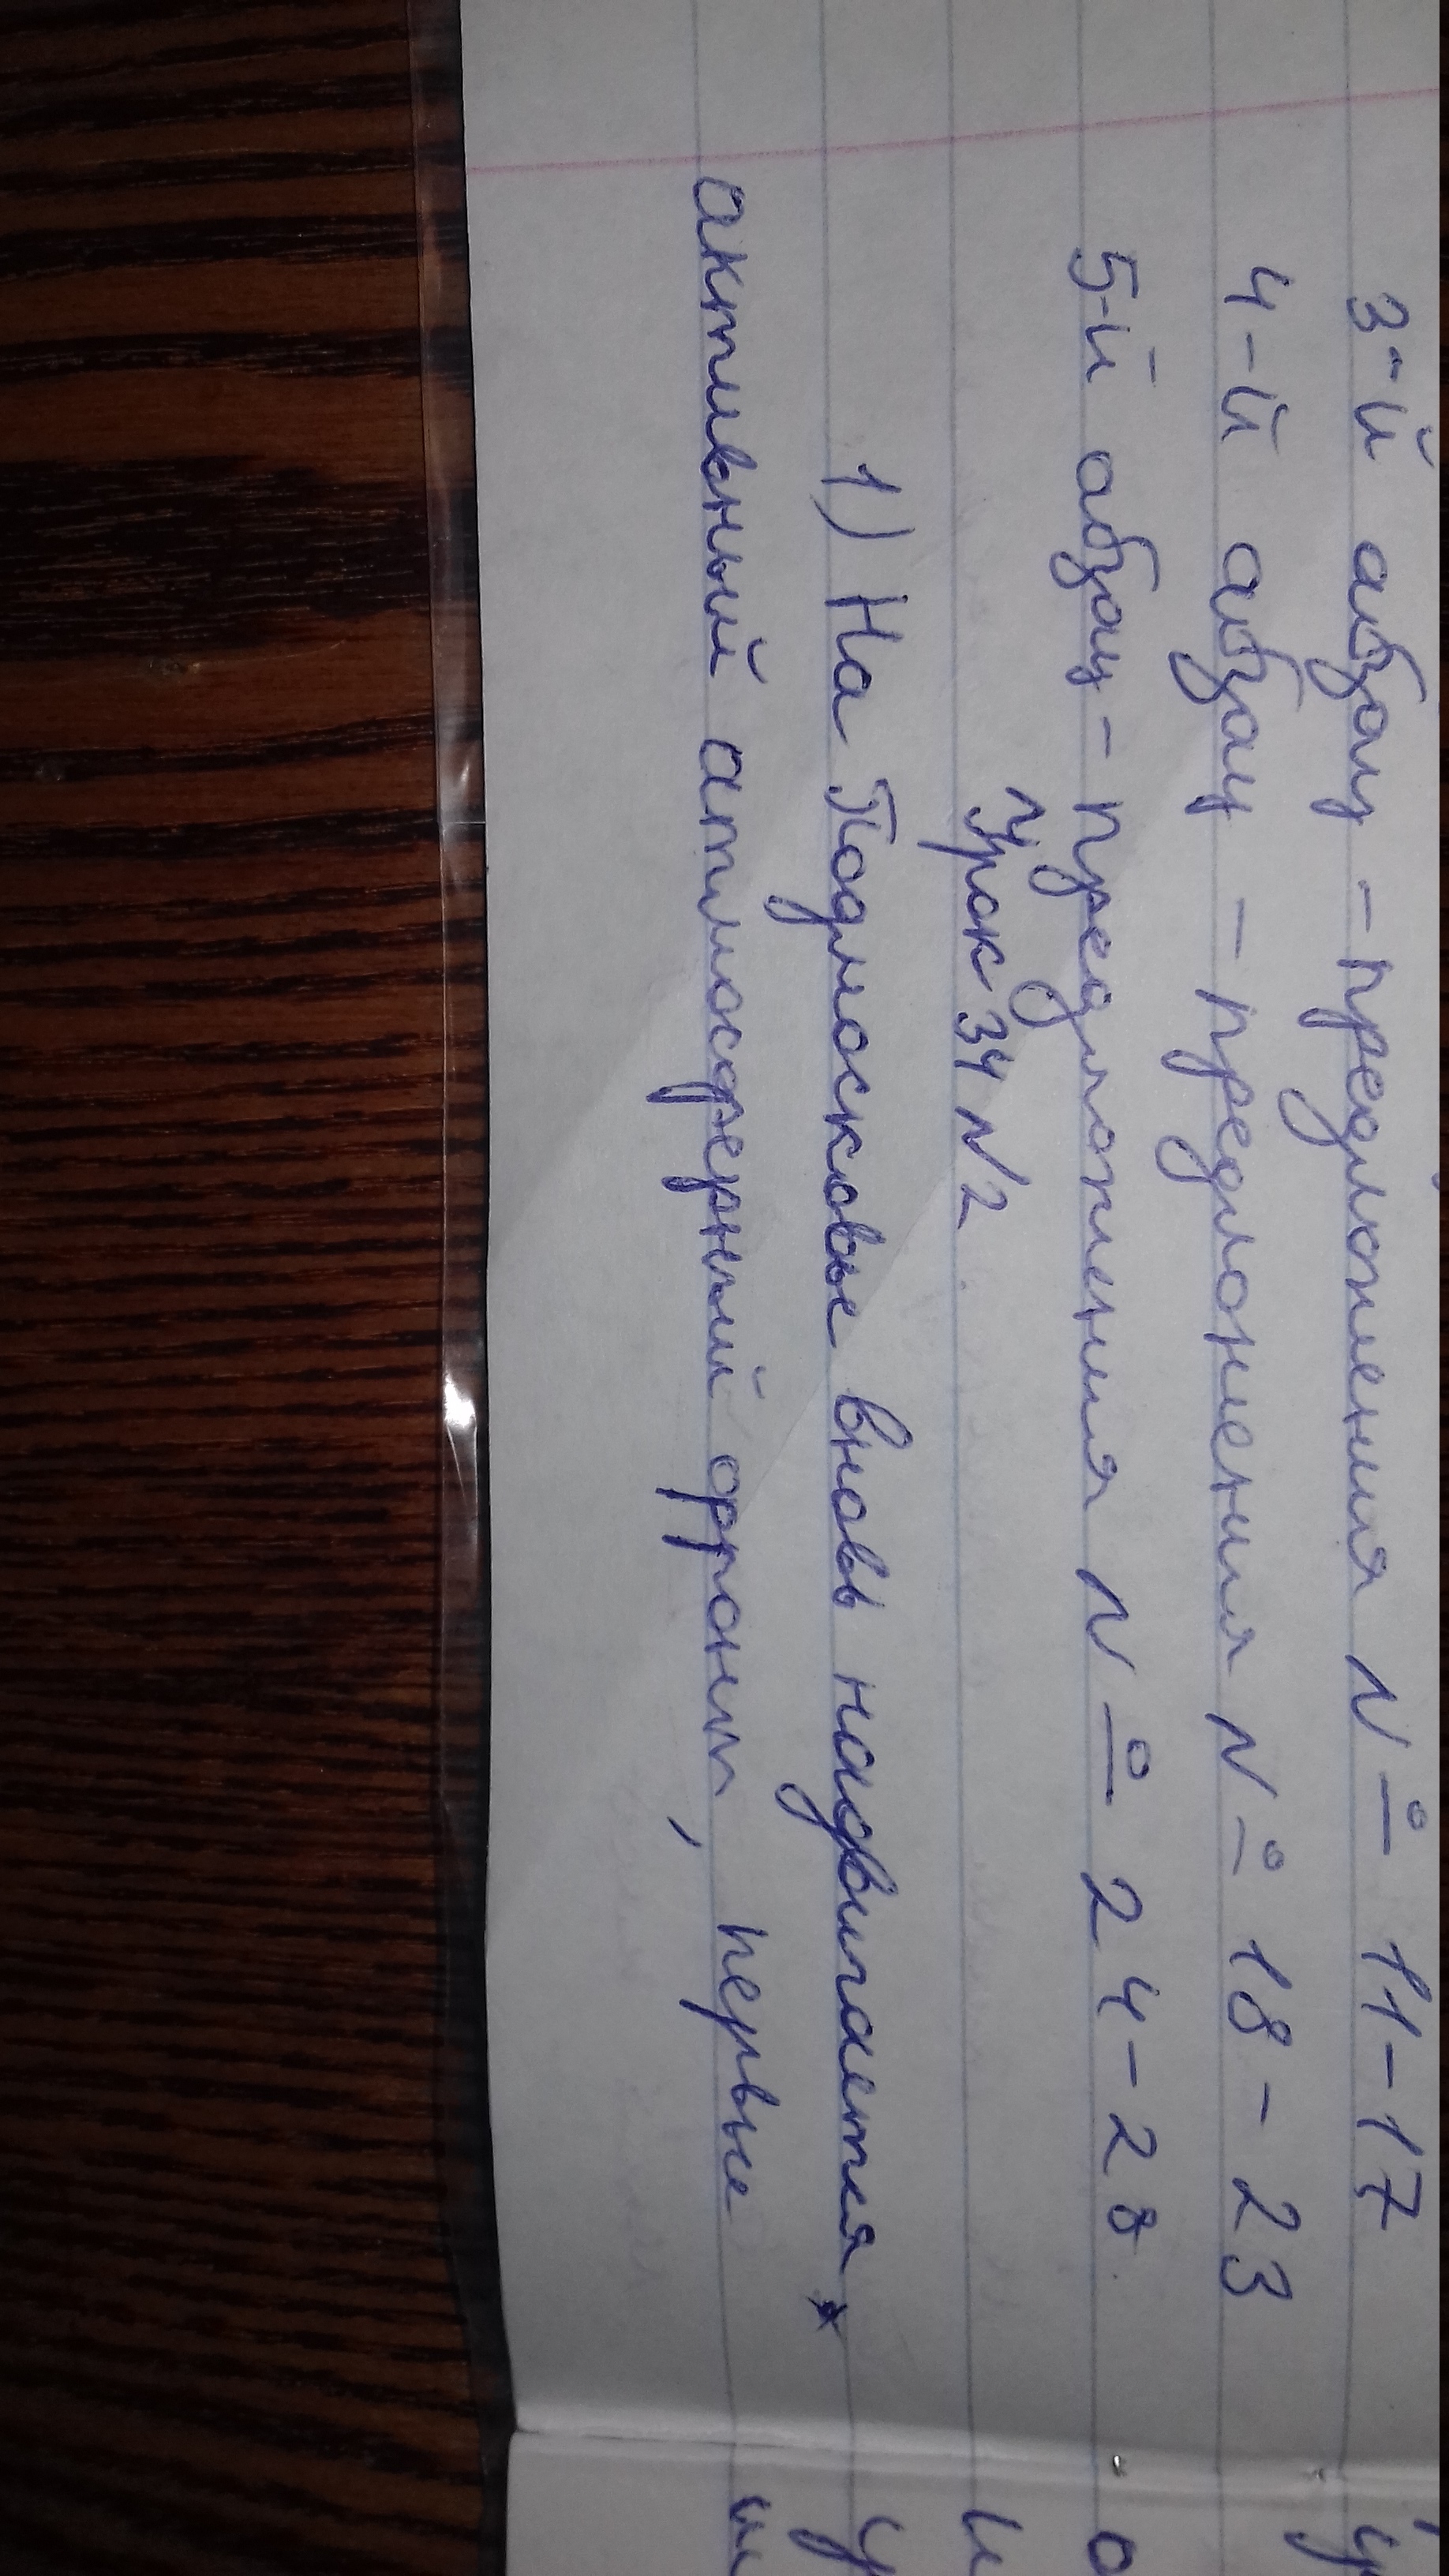 3-й абзац - предложения № 11-17
4-й абзац - предложения № 18-23
5-й абзац - предложения № 24-28
Урок 34 N2
1) На Подмосковье вновь надвигается
активный атмосферный фронт, первые